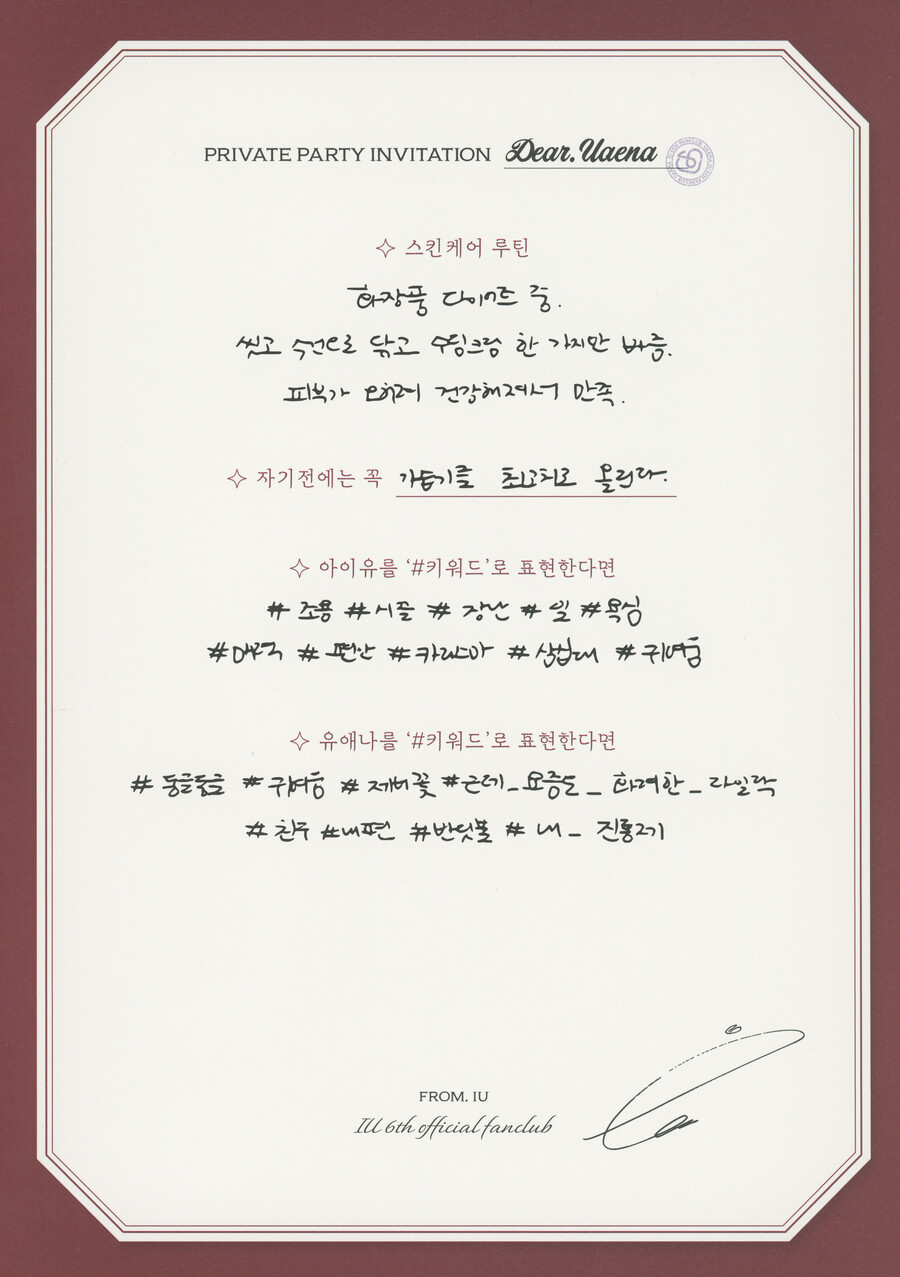 PRIVATE PARTY INVITATION Dear. Uaena
✧ 스킨케어 루틴
화장품 다이어트 중.
씻고 수건으로 닦고 수딩크림 한 가지만 바름.
피부가 오히려 건강해져서 만족.
✧ 자기전에는 꼭 가습기를 최고치로 올린다.
✧ 아이유를 ‘#키워드’로 표현한다면
# 조용 # 시끌 # 장난 # 일 # 욕심
# 매력 # 편안 # 카리스마 # 삼십대 # 귀여움
✧ 유애나를 ‘#키워드’로 표현한다면
# 둥글둥글 # 귀여움 # 제비꽃 # 근데_요즘은_화려한_라일락
# 친구 # 내편 # 반딧불 # 내_진통제
FROM. IU
IU 6th official fanclub